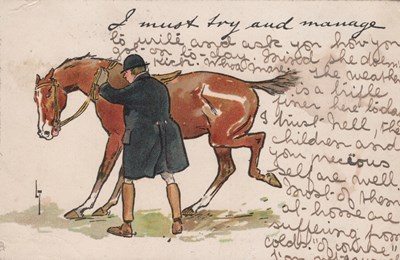 I must try and manage
to write and ask you how you
to-day. Mind the
Kick. What
The weather
is a trifle
finer here today
I trust Nell, the
children and
your precious
self are well
Most of them
at home are
suffering from
colds, "of course"